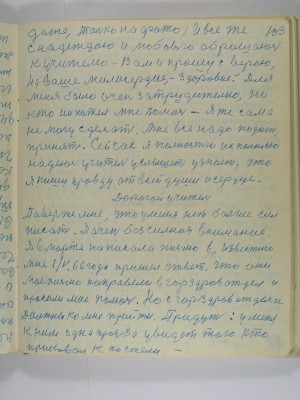 даже, только на фото, и все же 103
с надеждою и любовью обращаюсь
к учителю – Вам и прошу с верою,
на Ваше милосердие – здоровье. Для
меня было очень затрудительно, но
кто их хотел мне помочь – Я же сама
не могу сделать. Мне все надо подать,
принять. Сейчас я полностью исполнена
надеюсь учитель услышит узнает, что
я пишу правду от всей души и сердце.
Дорогой учитель
Поверьте мне, что у меня нет больше сил
писать. Я очень бессильная внимание
16 марта написала письмо в известно
мне 8/V, 66 года пришел ответ, что они
мое письмо направели в горздравотдел и
просили мне помочь. Но с горздравотдела
должны ко мне прийти. Придут: у меня
к ним одна просьба увидеть того кто
прикован к постели –